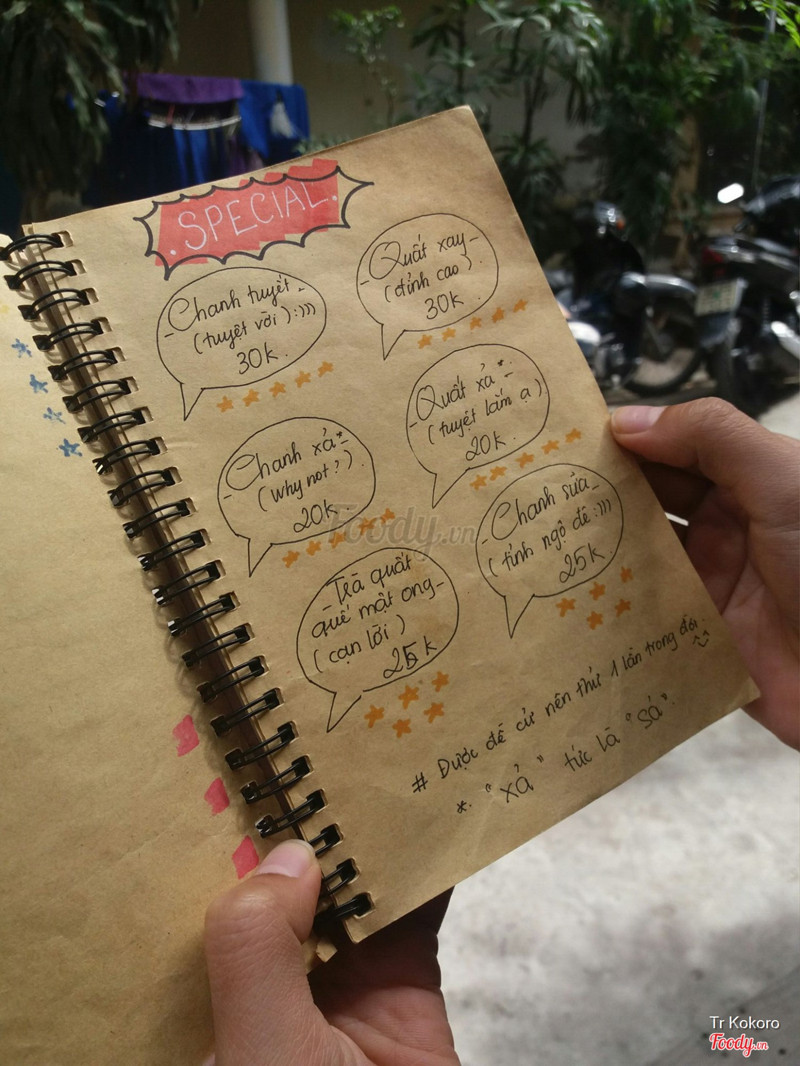 .SPECIAL.
- Chanh tuyết -
(tuyệt vời) :)))
30k.
- Quất xay -
(đỉnh cao)
30k.
- Quất xả* -
(tuyệt lắm ạ)
20k.
- Chanh xả* -
(why not?)
20k.
- Chanh sữa -
(tỉnh ngộ đê :)))
25k
- Trà quất
quế mật ong -
(cạn lời)
25k
# Được đề cử nên thử 1 lần trong đời. ^^
*. "xả" tức là "sả".
Foody.vn
Tr Kokoro
Foody.vn